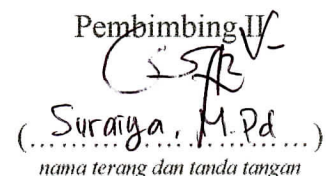 Pembimbing II
(Suraiya, M.Pd)
nama terang dan tanda tangan